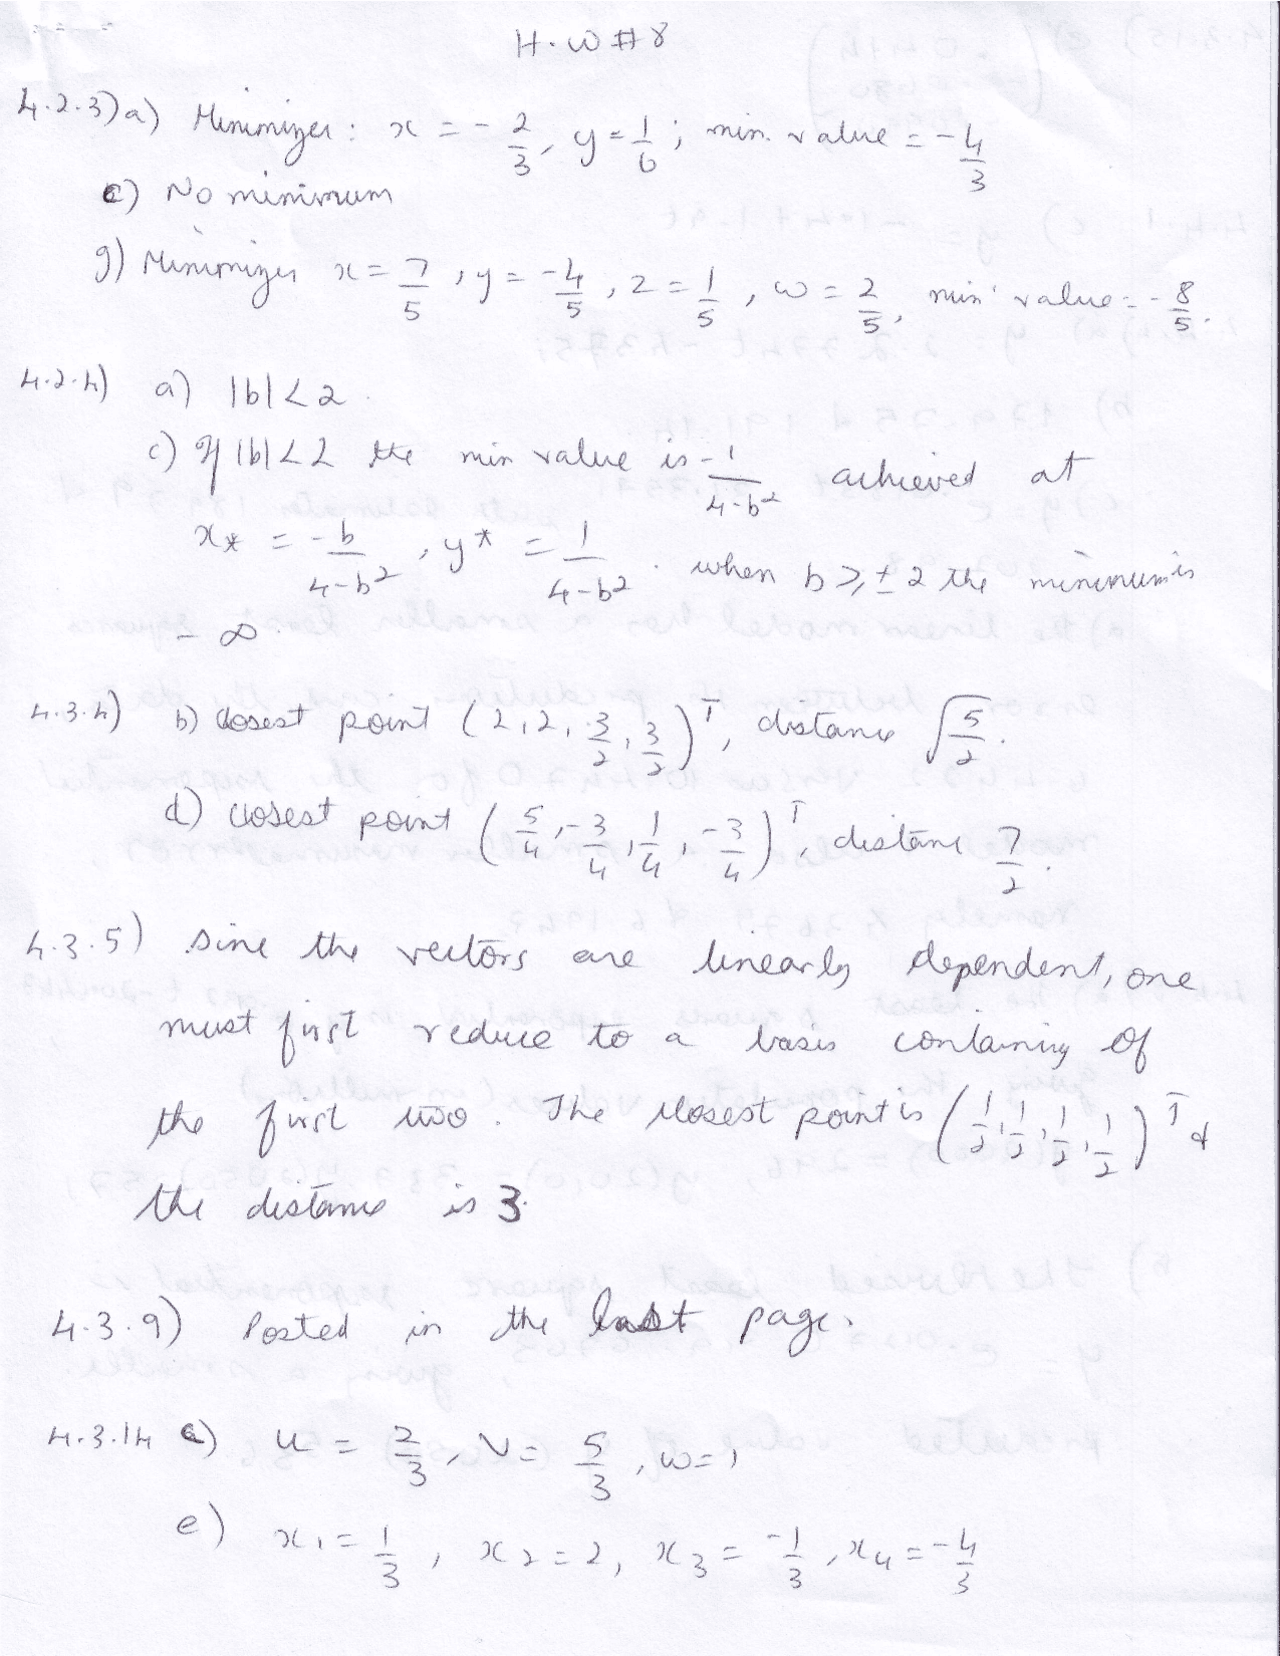 H.W #8
4.2.3) a) Minimizer: x = -2/3, y = 1/6; min. value = -4/3
c) No minimum
g) Minimizer x = 7/5, y = -4/5, z = 1/5, w = 2/5, min value = -8/5.
4.2.4) a) |b| < 2.
c) If |b| < 2 the min value is -1/(4-b²) achieved at
x* = -b/(4-b²), y* = 1/(4-b²). when b ≥ ± 2 the minimum is
- ∞.
4.3.4) b) closest point (2, 2, 3/2, 3/2)ᵀ, distance √(5/2).
d) closest point (5/4, -3/4, 1/4, -3/4)ᵀ, distance 7/2.
4.3.5) Since the vectors are linearly dependent, one
must first reduce to a basis containing of
the first two. The closest point is (1/2, 1/2, 1/2, 1/2)ᵀ &
the distance is 3.
4.3.9) Posted in the last page.
4.3.14 c) u = 2/3, v = 5/3, w = 1
e) x₁ = 1/3, x₂ = 2, x₃ = -1/3, x₄ = -4/3